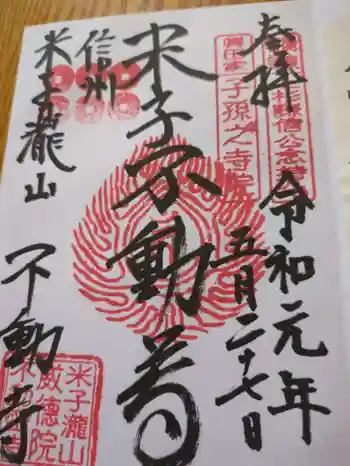 奉拝
令和元年
五月二十七日
米子不動尊
信州
米子瀧山
不動寺
子孫之寺
米子瀧山
威徳院